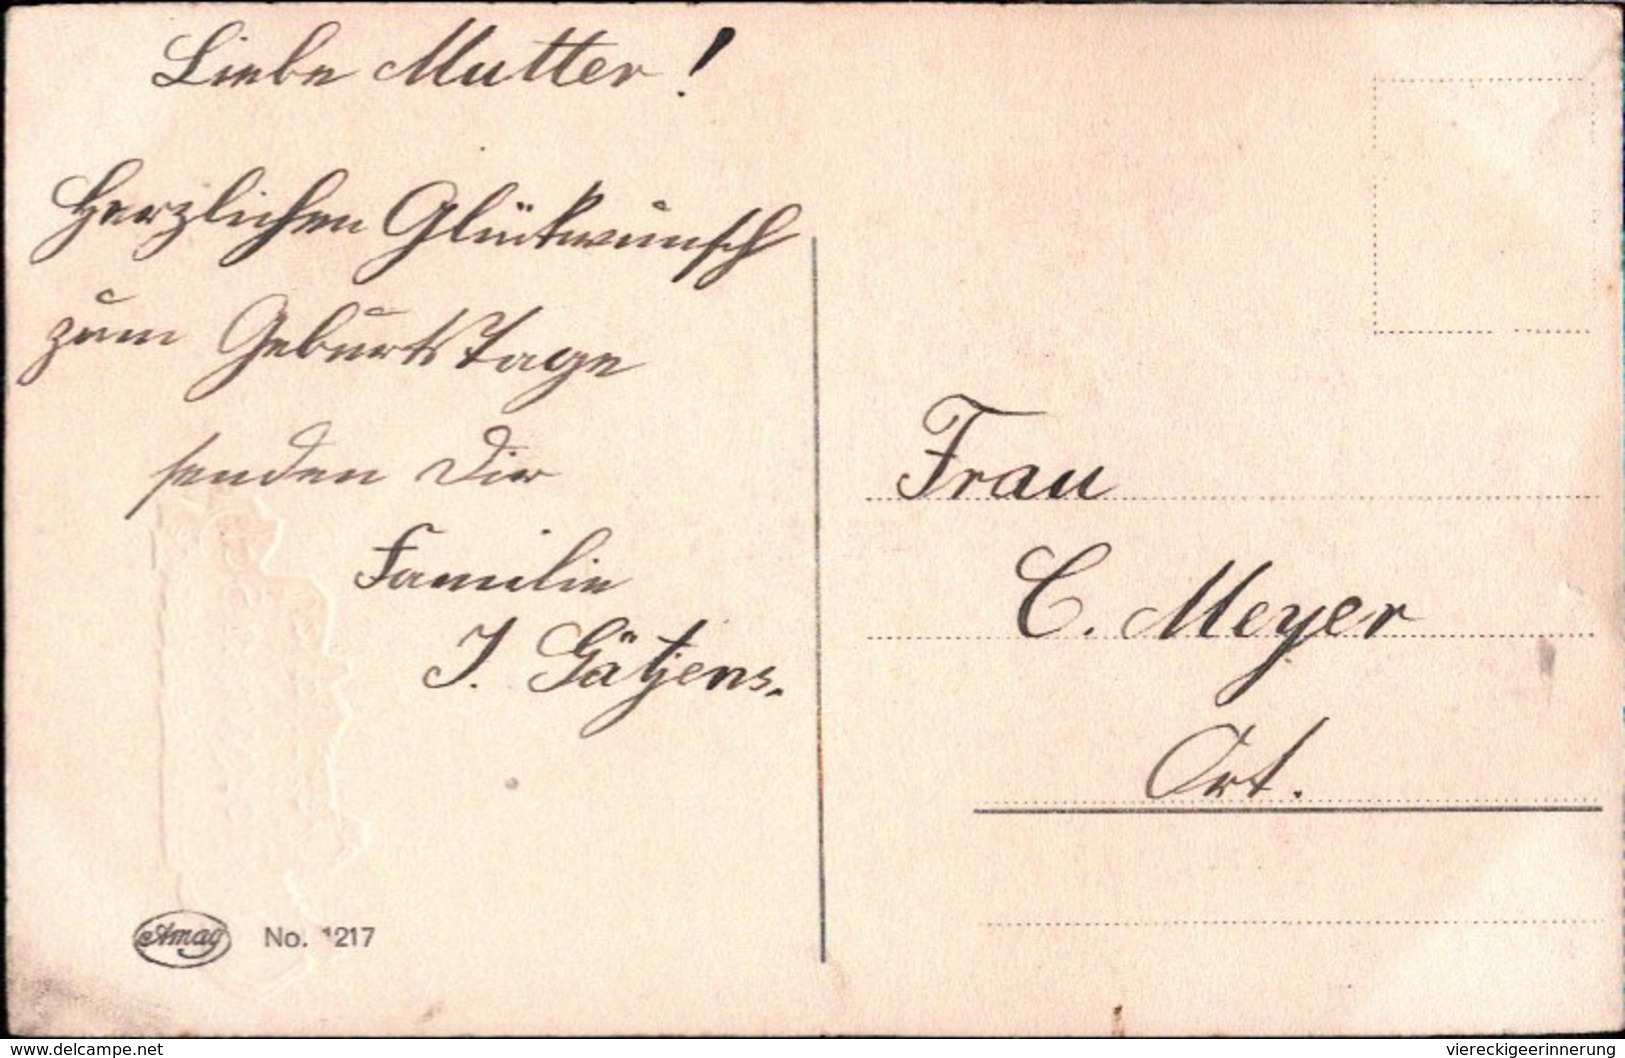 Liebe Mutter!
Herzlichen Glückwunsch
zum Geburtstage
senden Dir
Familie
J. Gätjens.
Frau
C. Meyer
Ort.
Amag No. 1217
www.delcampe.net
viereckigeerinnerung